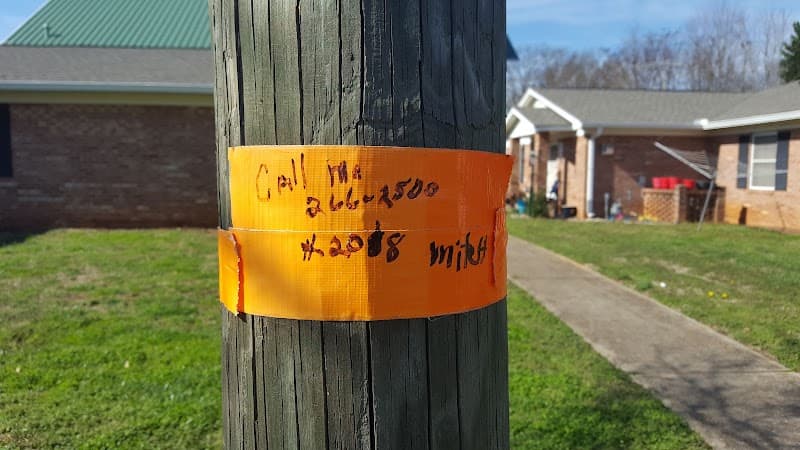 Call Me
266-2500
#2018 mitch